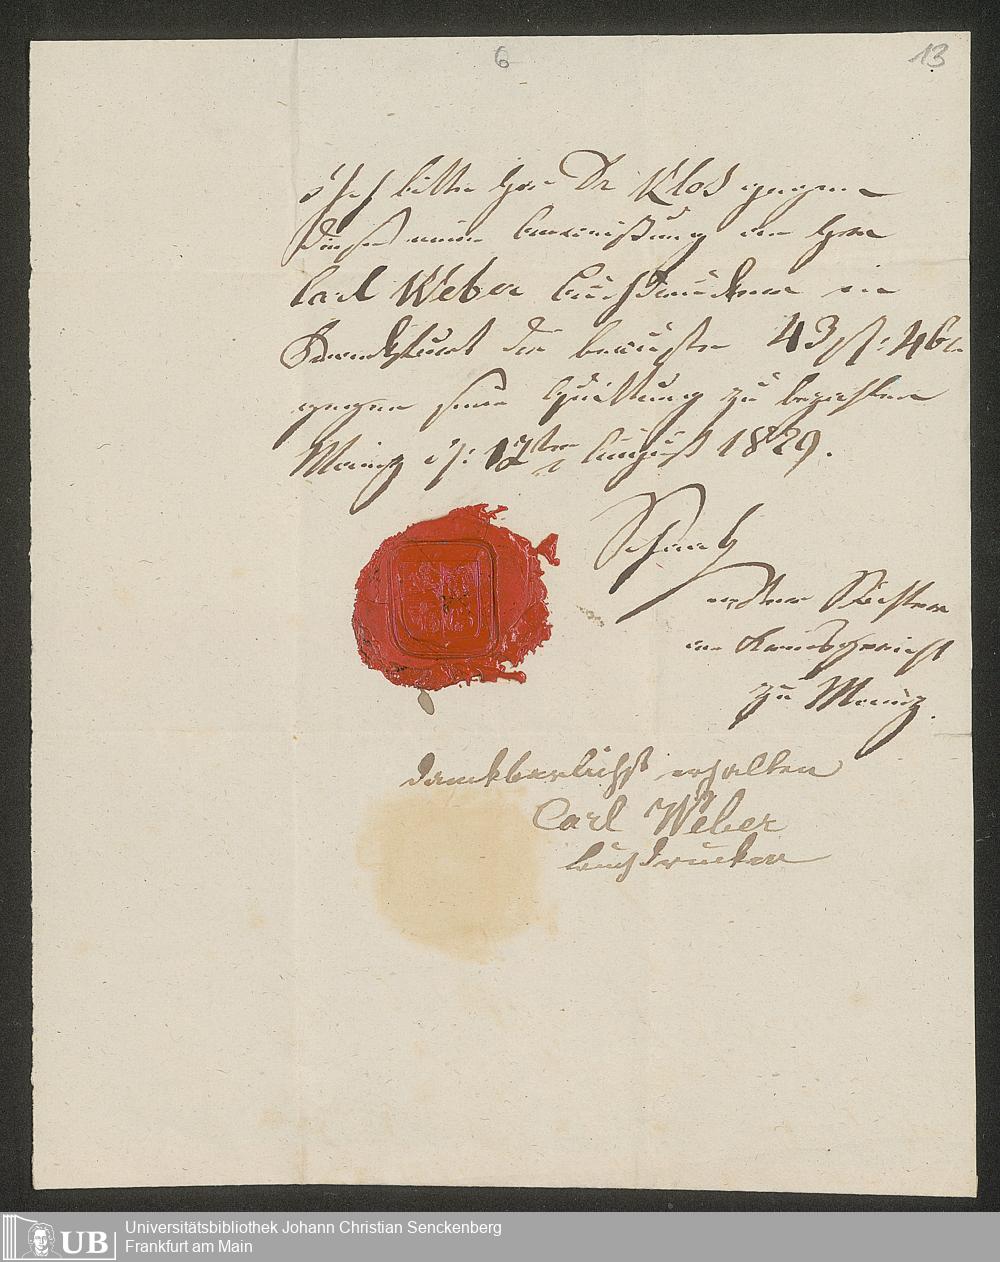 6
13
Ich bitte Hrn Dr Klos gegen
diese meine Anweisung an Hrn
Carl Weber Buchdrucker in
Frankfurt die bewusten 43 fl: 46
gegen seine Quittung zu bezahlen
Mainz d: 12ten August 1829.
erster Richter
am Kreisgericht
zu Mainz.
danckbarlichst erhalten
Carl Weber
buchdrucker
UB
Universitätsbibliothek Johann Christian Senckenberg
Frankfurt am Main